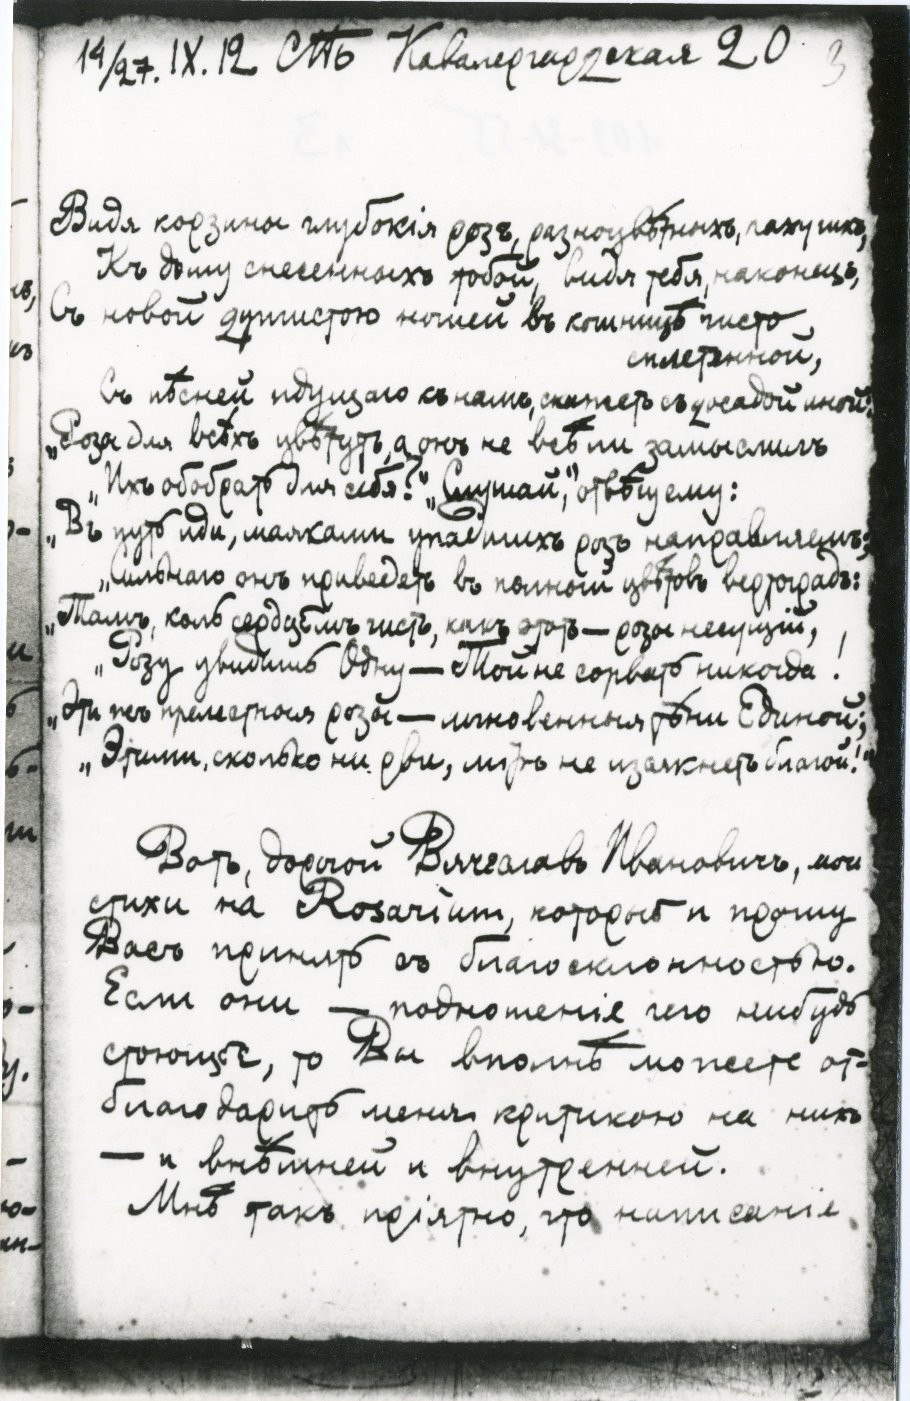 14/27. IX. 12 СПБ Кавалергардская 20 3
Видя корзины глубокія розъ, разноцвѣтныхъ, пахучихъ,
Къ дому снесенныхъ тобой, видя тебя, наконецъ,
Съ новой душистою ношей въ кошницѣ чисто
сплетенной,
Съ пѣсней идущаго къ намъ, скажетъ съ досадой иной:
„Розы для всѣхъ цвѣтутъ, а онъ не всѣ ли замыслилъ
„Ихъ обобрать для себя?" „Слушай," отвѣчу ему:
„Въ путь иди, маяками упавшихъ розъ направляемъ;
„Сильнаго онъ приведетъ въ полный цвѣтовъ вертоградъ:
„Тамъ, коль сердцемъ чистъ, какъ этотъ — розы несущій,
„Розу увидишь Одну — Той не сорвать никогда!
„Эти жъ прелестныя розы — мгновенныя тѣни Единой;
„Этими, сколько ни рви, міръ не изсякнетъ благой!"
Вотъ, дорогой Вячеславъ Ивановичъ, мои
стихи на Rosarium, которые и прошу
Васъ принять съ благосклонностью.
Если они — подношеніе чего нибудь
стоющее, то Вы вполнѣ можете от-
благодарить меня критикою на нихъ
— и внѣшней и внутренней.
Мнѣ такъ пріятно, что написаніе